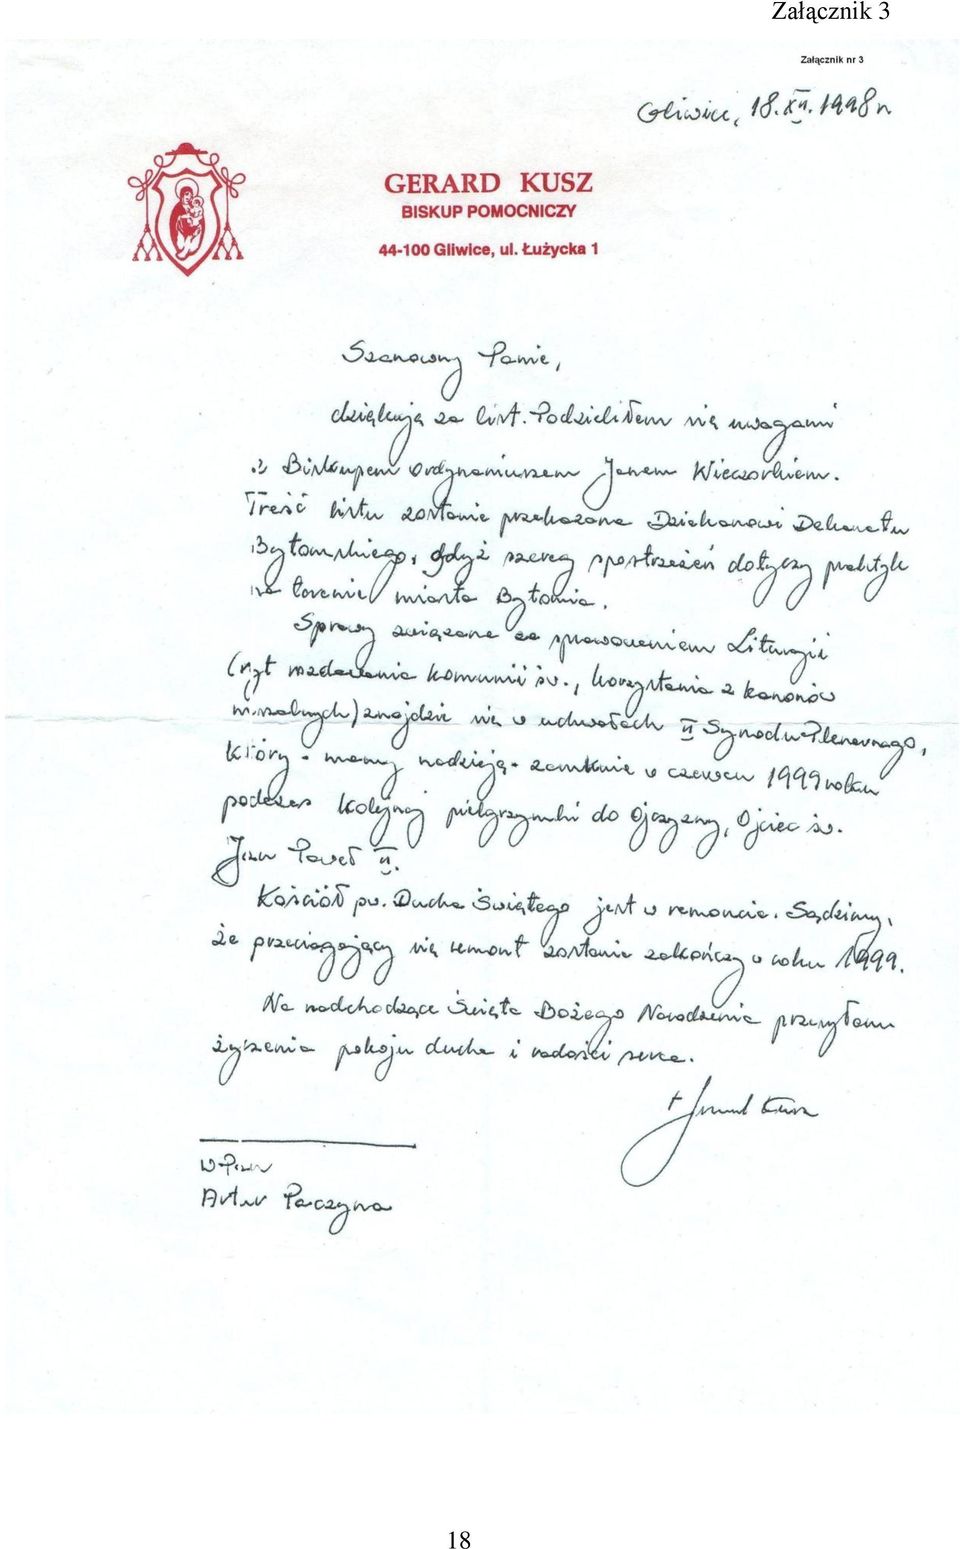 Załącznik 3
Załącznik nr 3
Gliwice, 18.XII.1998 r.
GERARD KUSZ
BISKUP POMOCNICZY
44-100 Gliwice, ul. Łużycka 1
Szanowny Panie,
dziękuję za list. Podzieliłem się uwagami
z Biskupem ordynariuszem Janem Wieczorkiem.
Treść listu zostanie przekazana Dziekanowi Dekanatu
Bytomskiego, gdyż szereg spostrzeżeń dotyczy praktyk
na terenie miasta Bytomia.
Sprawy związane ze sprawowaniem Liturgii
(ryt rozdawania komunii św., korzystania z kanonów
mszalnych) znajdzie się w uchwałach II Synodu Plenarnego,
który - mamy nadzieję - zamknie w czerwcu 1999 roku
podczas kolejnej pielgrzymki do Ojczyzny, Ojciec św.
Jan Paweł II.
Kościół pw. Ducha Świętego jest w remoncie. Sądzimy,
że przeciągający się remont zostanie zakończy w roku 1999.
Na nadchodzące Święta Bożego Narodzenia przesyłam
życzenia pokoju ducha i radości serca.
+ Gerard Kusz
WPan
Artur Paczyna
18